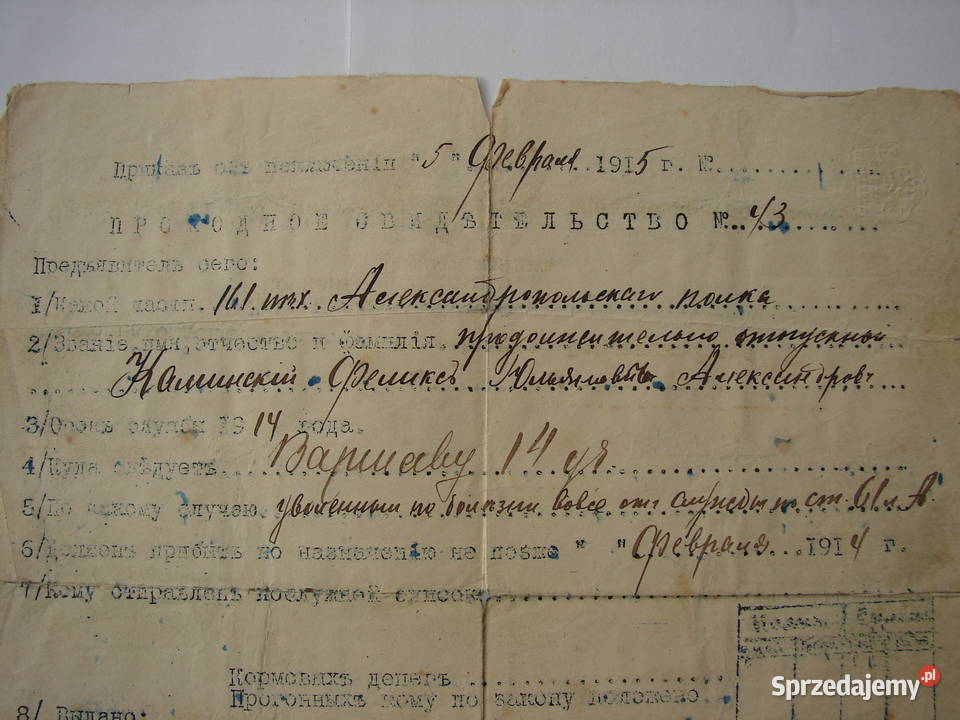 Приказ об исключеніи "5" Февраля 1915 г. №
ПРОХОДНОЕ СВИДѢТЕЛЬСТВО № 43
Предъявитель сего:
1/Какой части. 161 пѣх. Александропольскаго полка
2/Званіе, имя, отчество и фамилія продолжительно отпускной
Каминскій Феликсъ Александров
3/Срокъ службы 1914 года.
4/Куда слѣдуетъ Варшаву 14
5/По какому случаю уволенный по болѣзни вовсе отъ службы по ст.
6/Долженъ прибыть по назначенію не позже " " Февраля 1914 г.
7/Кому отправленъ послужной списокъ
Кормовыхъ денегъ
Прогонныхъ кому по закону положено
8/ Выдано:
Sprzedajemy.pl